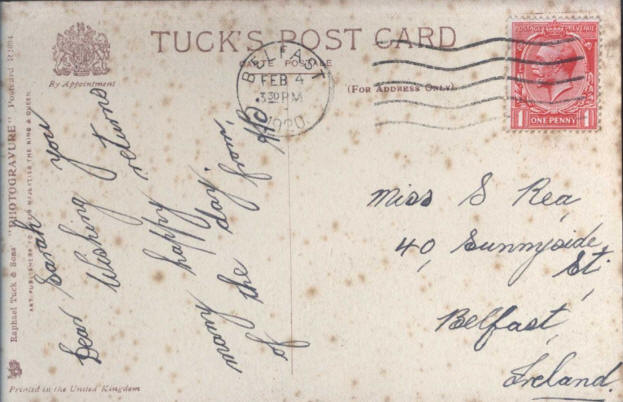 TUCK'S POST CARD
CARTE POSTALE
(FOR ADDRESS ONLY)
By Appointment
BELFAST
FEB 4
3 30 PM
1920
POSTAGE REVENUE
1 ONE PENNY 1
Raphael Tuck & Sons' "PHOTOGRAVURE" Postcard
ART PUBLISHERS TO THEIR MAJESTIES THE KING & QUEEN
Dear Sarah
Wishing you
many happy returns
of the day.
from
Miss S Rea
40, Sunnyside
St.
Belfast
Ireland.
Printed in the United Kingdom